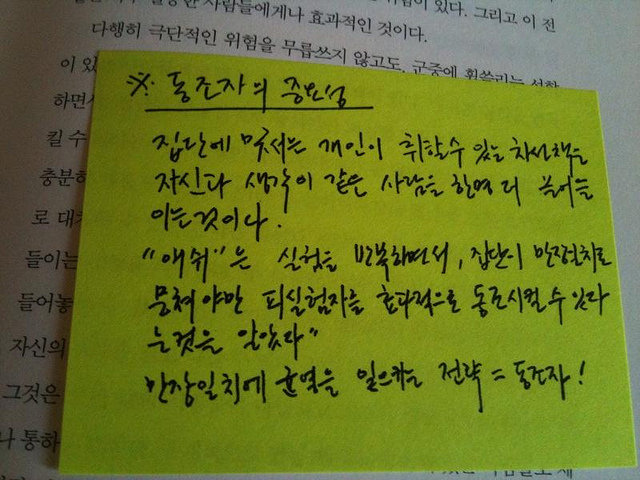 사람들에게나 효과적인 것이다.
있다. 그리고 이 전
다행히 극단적인 위험을 무릅쓰지 않고도, 군중에 휩쓸리는
이 있
하면
킬 수
충분히
로 대
들이는
들어놓
자신의
그것은
나 통하
※ 동조자의 중요성
집단에 맞서는 개인이 취할수 있는 차선책은
자신과 생각이 같은 사람을 한명 더 끌어들
이는것이다.
"애쉬"은 실험을 반복하면서, 집단이 만장일치로
뭉쳐야만 피실험자를 효과적으로 동조시킬 수 있다
는것을 알았다"
만장일치에 균열을 일으키는 전략 = 동조자!